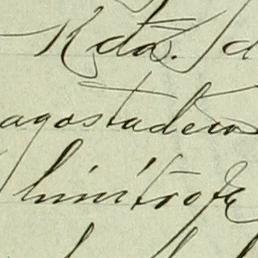 Rcta. d
agostadero
limítrofe